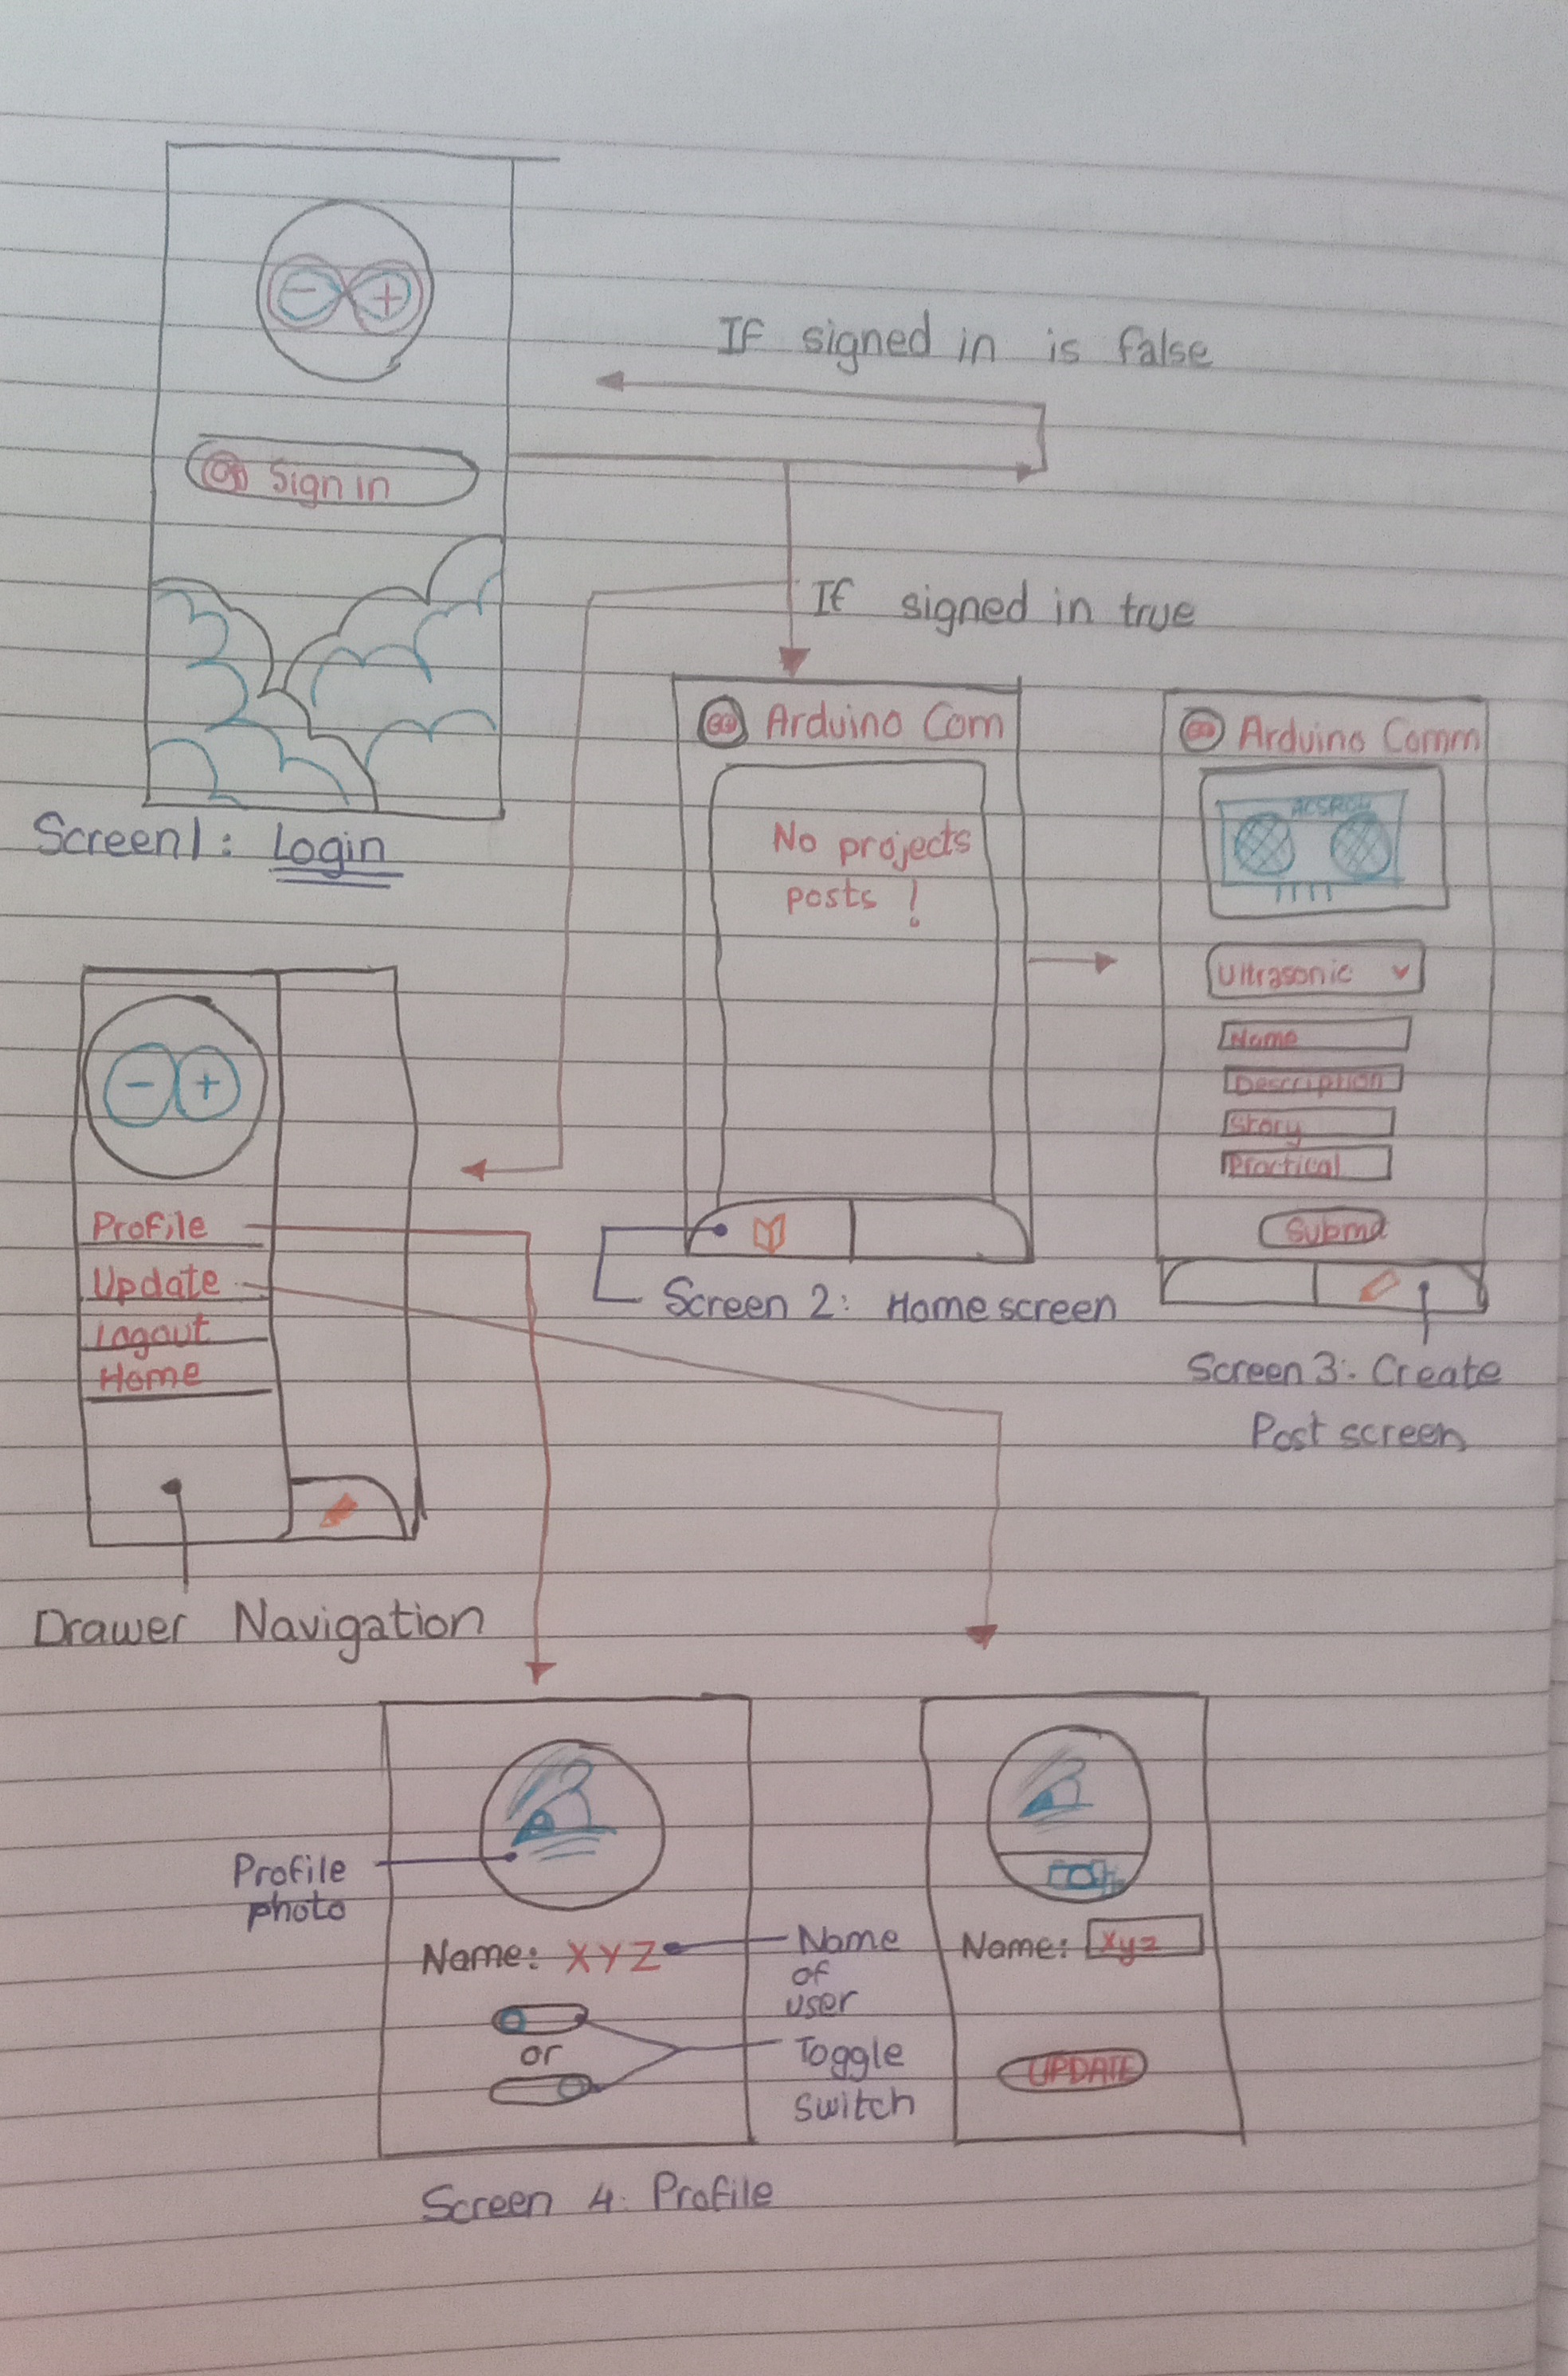 If signed in is false
Sign in
If signed in true
Screen 1: Login
Arduino Com
No projects
posts !
Screen 2: Homescreen
Arduino Comm
Ultrasonic
Name
Description
Story
Practical
Screen 3: Create
Post screen
- +
Profile
Update
Logout
Home
Drawer Navigation
Profile
photo
Name: XYZ
or
Name
of
user
Toggle
switch
Screen 4: Profile
Name: xyz
UPDATE